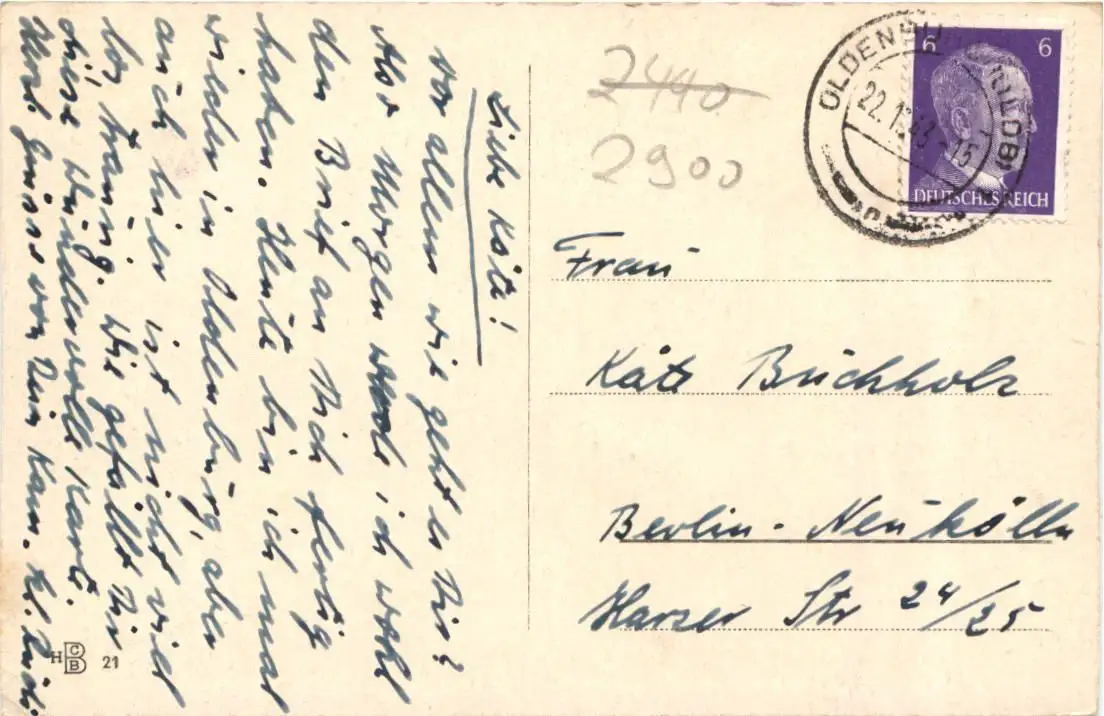 Liebe Käte!
vor allem wie geht es Dir?
Also Morgen werde ich wohl
den Brief an Dich fertig
haben. Heute bin ich mal
wieder in Oldenburg, aber
auch hier ist nicht viel
los, traurig. Wie gefällt Dir
diese wundervolle Karte.
Herzl. Grüsse von Dein Kam.
2440
2900
OLDENBU (OLDB)
22.1 43 -15
6 6
DEUTSCHES REICH
Frau
Käte Buchholz
Berlin-Neukölln
Harzer Str 24/25
H CB 21